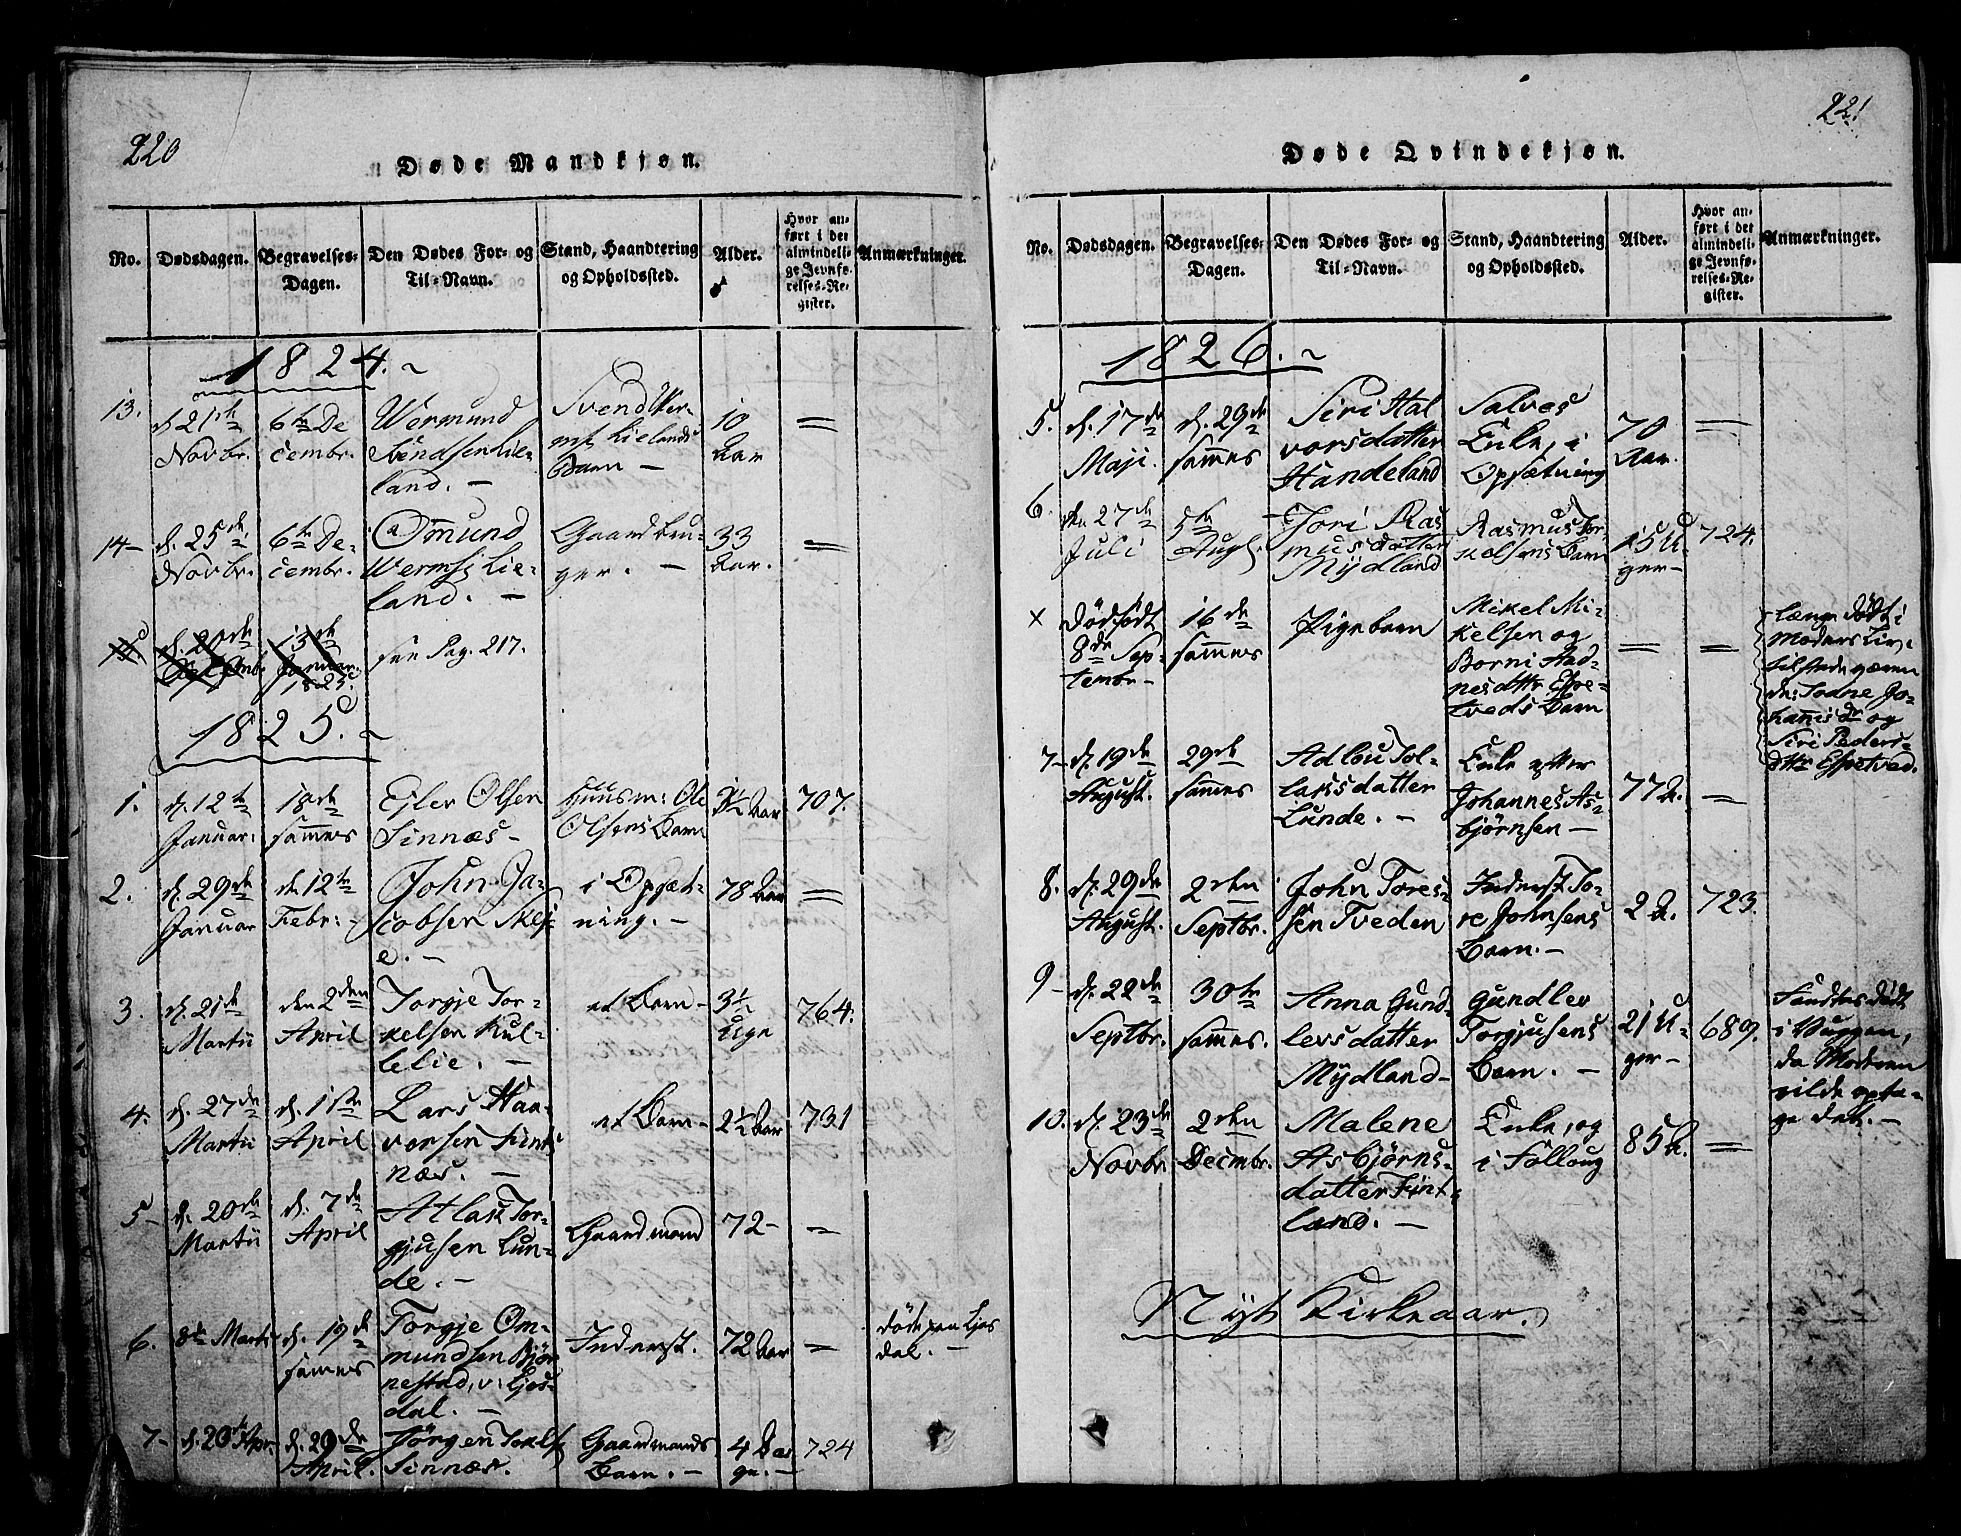 220
Døde Mandkjøn.
No.
Dødsdagen.
Begravelses-
Dagen.
Den Dødes For- og
Til-Navn.
Stand, Haandtering
og Opholdssted.
Alder.
Hvor an-
ført i det
almindeli-
ge Jevnfø-
relses-Re-
gister.
Anmærkninger.
1824.
13.
d. 21de
Novbr.
6te De
cembr.
Wermund
Svendsen Lie-
land. -
Svend Wer-
Lielands
Barn -
10
Aar
=
14-
d. 25de
Novbr.
6te De-
cembr.
Omund
Werms: Lie-
land. -
Gaardbru-
ger. -
33
Aar.
=
15.
d. 20de
13de
Januar.
1825.
see Pag. 217.
1825.
1.
d. 12te
Januar.
18de
sammes
Ejler Olsen
Sinnæs -
Huusm: Ole
Olsens Barn
3½ Aar
707.
2.
d. 29de
Januar
d. 12te
Febr: -
John Ja-
cobsen Skej-
e. -
i Opsæt-
ning. -
78 Aar
=
3.
d. 21de
Martii
den 2den
April
Torgje Tor-
kelsen Kul-
lelie. -
et Barn -
3½
Uge
764.
4.
d. 27de
Martii
d. 11te
April
Lars Haa-
vorsen Sint-
næs. -
et Barn -
2½ Aar
731
5-
d. 20de
Martii
d. 7de
April
Atlak Tor-
gjusen Lun-
de. -
Gaardmand
72 -
=
6.
8de Martii
d. 19de
sammes
Torgje Om-
mundsen Bjør
nestad, v: Ljos-
dal. -
Inderst.
72 Aar
=
døde paa Ljos
dal. -
7-
d. 20de Apr.
d. 29de
April.
Jørgen
Sinnæs.
Gaardmands
Barn. -
4 Da
ge. -
724
221
Døde Qvindekjøn.
No.
Dødsdagen.
Begravelses-
Dagen.
Den Dødes For- og
Til-Navn.
Stand, Haandtering
og Opholdssted.
Alder.
Hvor an-
ført i det
almindeli-
ge Jevnfø-
relses-Re-
gister.
Anmærkninger.
1826.
5.
d. 17de
Maji.
d. 29de
sammes
Siri Hal
vorsdatter
Handeland
Salves
Enke, i
Opsætning
70
Aar.
=
6.
den 27de
Juli
5te
Augs.
Jori Ras
musdatter
Mydland
Rasmus Tor-
kelsens Barn
15 U-
ger -
724.
×
Dødfødt
8de Sep-
tembr -
16de
sammes
Pigebarn
Mikel Mi-
kelsen og
Borni Aad-
nesdttr Espe-
tveds Barn
=
=
længe død i
Moders Liv,
tilstedeværen
de: Todne Jo-
hannisdr og
Siri Peders-
dttr Espetved.
7-
d. 19de
August.
29de
sammes
Adlou Tol-
laksdatter
Lunde. -
Enke efter
Johannes As-
bjørnsen -
77 A.
=
8.
d. 29de
August.
2den
Septbr.
John Tores-
sen Tveden
Inderst To-
re Johnsens
Barn. -
2 A.
723.
9-
d. 22de
Septbr.
30te
sammes.
Anna Gund-
levsdatter
Mydland -
Gundlev
Torgjusens
Barn. -
21 U-
ger -
689.
Fandtes død
i Vuggen,
da Moderen
vilde opta-
ge det. -
10.
d. 23de
Novbr
2den
Decmbr.
Malene
Asbjørns-
datter Fint-
land. -
Enke, og
i Følloug
85 A.
=
Nyt Kirkeaar.